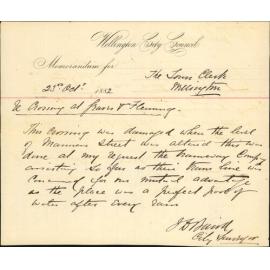 Wellington City Council
Memorandum for
The Town Clerk
Wellington
25 Oct 1882
Re Crossing at Graves & Fleming.
This Crossing was damaged when the level
of Manners Street was altered this was
done at my request the Tramway Company
assisting so far as their line was
concerned for our mutual advantage
as the place was a perfect pool of
water after every rain
J D Baird
City Surveyor